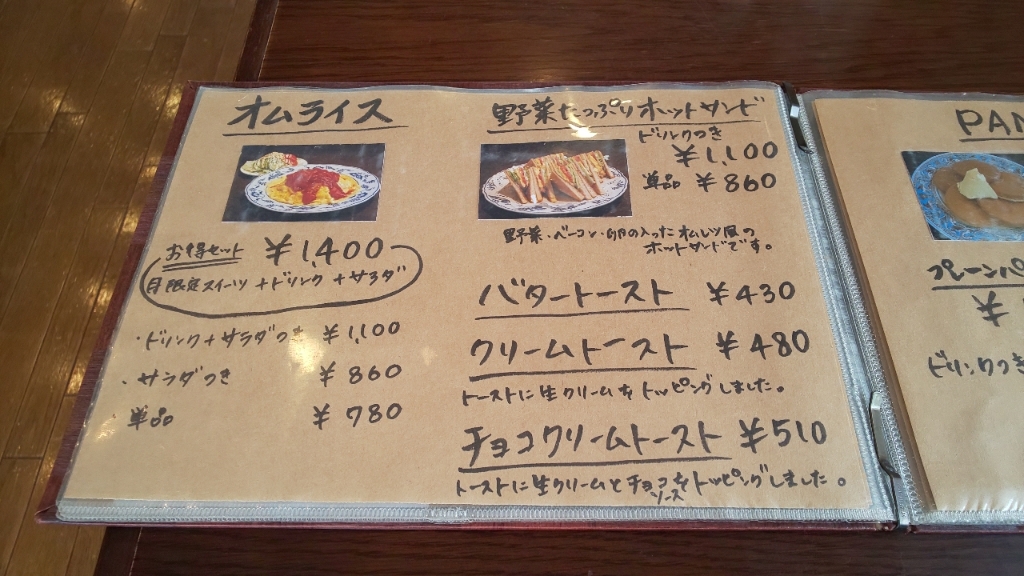 オムライス
お得セット ¥1,400
月限定スイーツ+ドリンク+サラダ
・ドリンク+サラダつき ¥1,100
・サラダつき ¥860
・単品 ¥780
野菜たっぷりホットサンド
ドリンクつき
¥1,100
単品 ¥860
野菜・ベーコン・卵の入ったオムレツ風の
ホットサンドです。
バタートースト ¥430
クリームトースト ¥480
トーストに生クリームをトッピングしました。
チョコクリームトースト ¥510
トーストに生クリームとチョコソースをトッピングしました。
PAN
プレーンパ
¥
ドリンクつき